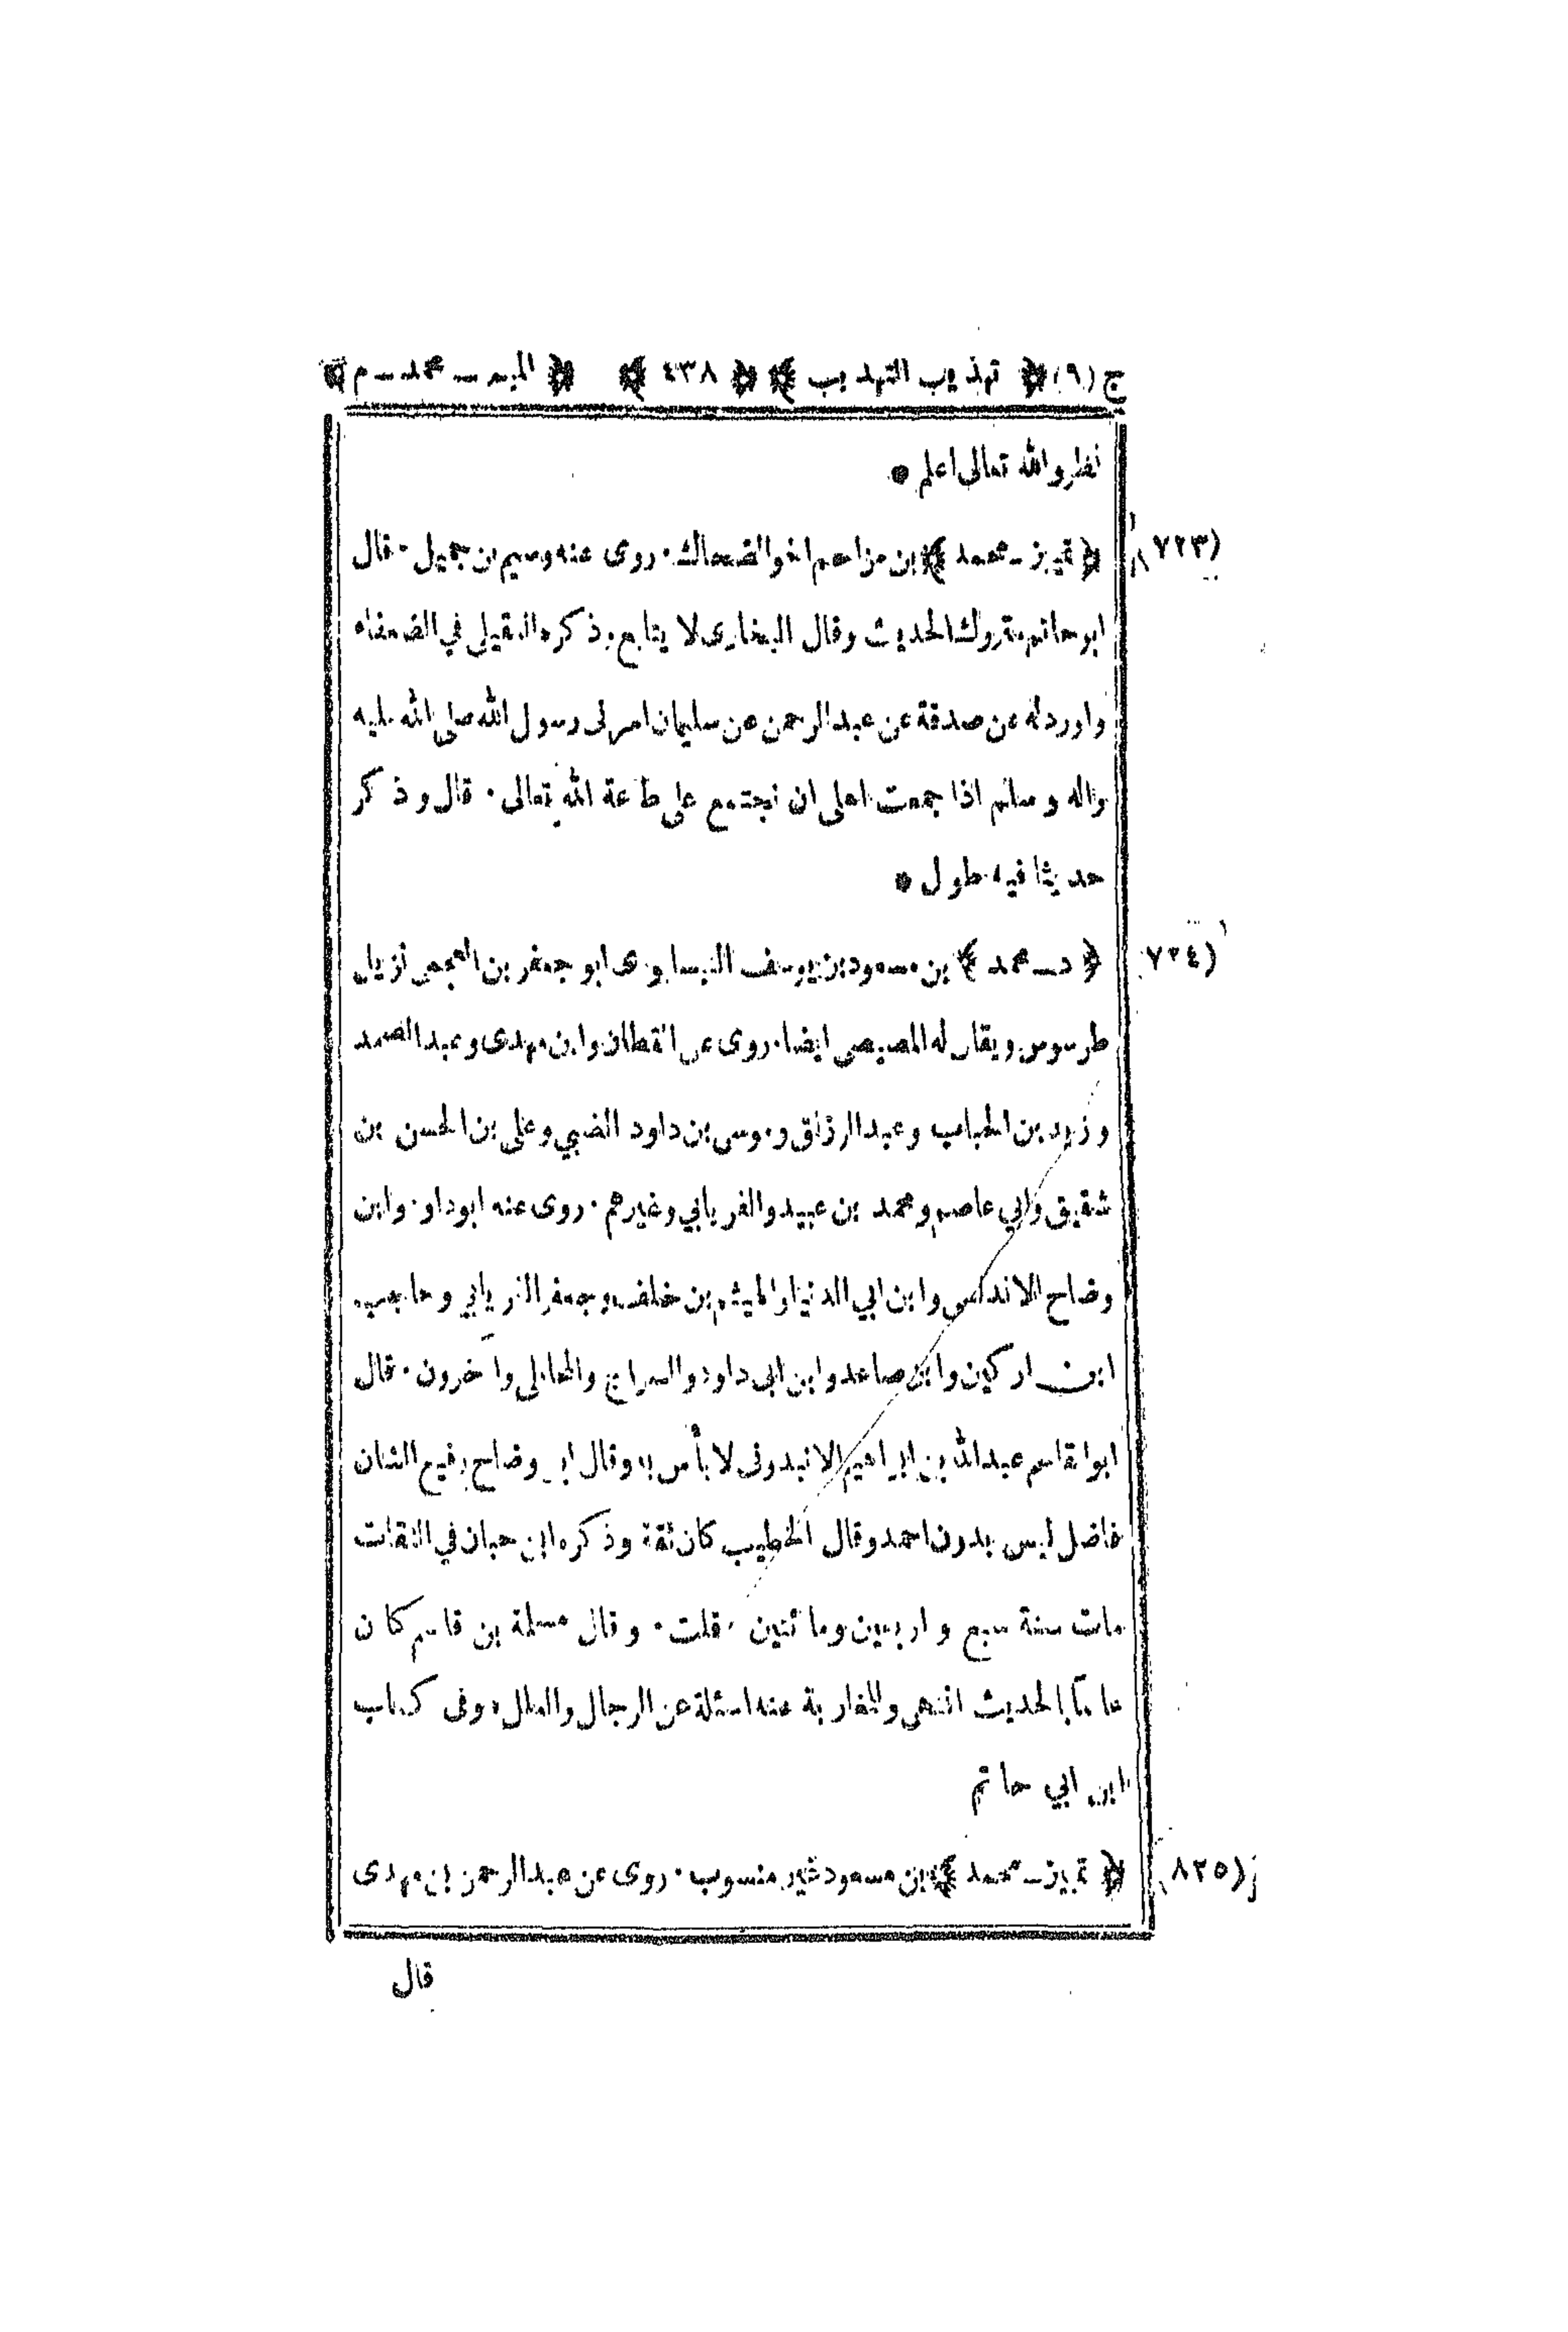 ج (٩) ﴿ تهذيب التهذيب ﴾ ﴿ ٤٣٨ ﴾ ﴿ الميم ـ محمد ـ م ﴾
نظر والله تعالى اعلم *
(٧٢٣) ﴿ تمييز ـ محمد ﴾ بن مزاحم اخوالضحاك · روى عنه وسيم بن جميل · قال
ابوحاتم متروك الحديث وقال البخارى لا يتابع وذكره العقيلي في الضعفاء
واورد له عن صدقة عن عبدالرحمن عن سليمان امرنى رسول الله صلى الله عليه
وآله وسلم اذا جمعت اهلى ان نجتمع على طاعة الله تعالى · قال وذكر
حديثا فيه طول *
(٧٢٤) ﴿ د ـ محمد ﴾ بن مسعود بن يوسف النيسابورى ابو جعفر بن العجمى نزيل
طرسوس ويقال له المصيصى ايضا · روى عن القطان وابن مهدى وعبد الصمد
وزيد بن الحباب وعبد الرزاق وموسى بن داود الضبي وعلى بن الحسن بن
شقيق وابي عاصم ومحمد بن عبيد والفريابي وغيرهم · روى عنه ابوداود وابن
وضاح الاندلسى وابن ابي الدنيا والهيثم بن خلف وجعفر الفريابي وحاجب
ابن اركين وابن صاعد وابن ابى داود والسراج والمحاملى وآخرون · قال
ابوالقاسم عبدالله بن ابراهيم الانبدونى لا بأس به وقال ابن وضاح رفيع الشان
فاضل ليس بدون احمد وقال الخطيب كان ثقة وذكره ابن حبان في الثقات
مات سنة سبع واربعين ومائتين · قلت · وقال مسلمة بن قاسم كان
عالما بالحديث انتهى وللمغاربة عنه اسئلة عن الرجال والعلل وفى كتاب
ابن ابي حاتم
(٨٢٥) ﴿ تمييز ـ محمد ﴾ بن مسعود غير منسوب · روى عن عبدالرحمن بن مهدى
قال